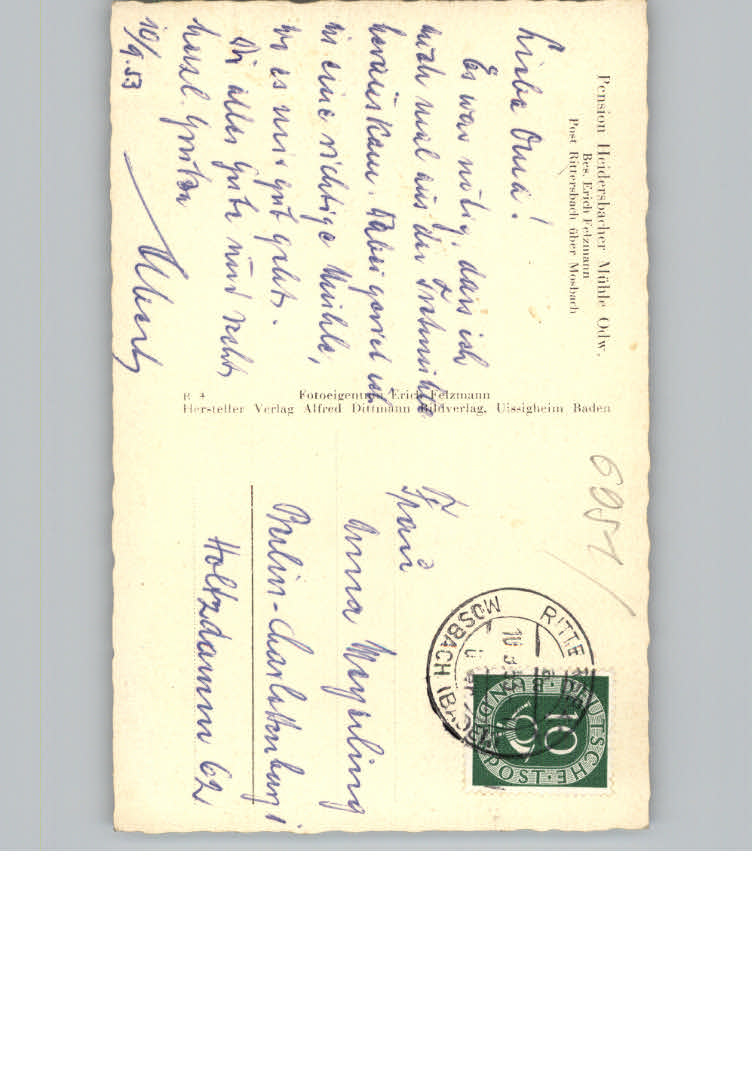 Pension Heidersbacher Mühle Odw.
Bes. Erich Felzmann
Post Rittersbach über Mosbach
Liebe Oma!
Es war nötig, dass ich
auch mal aus der Tretmühle
herauskam. Dabei geriet ich
in eine richtige Mühle,
wo es mir gut geht.
Dir alles Gute und recht
herzl. Grüße
10/9.53
R 4
Fotoeigentum Erich Felzmann
Hersteller Verlag Alfred Dittmann Bildverlag, Uissigheim Baden
6951
Frau
Anna Meyerling
Berlin-Charlottenburg
Holtzdamm 62
MOSBACH (BADEN)
DEUTSCHE
BUNDESPOST
10